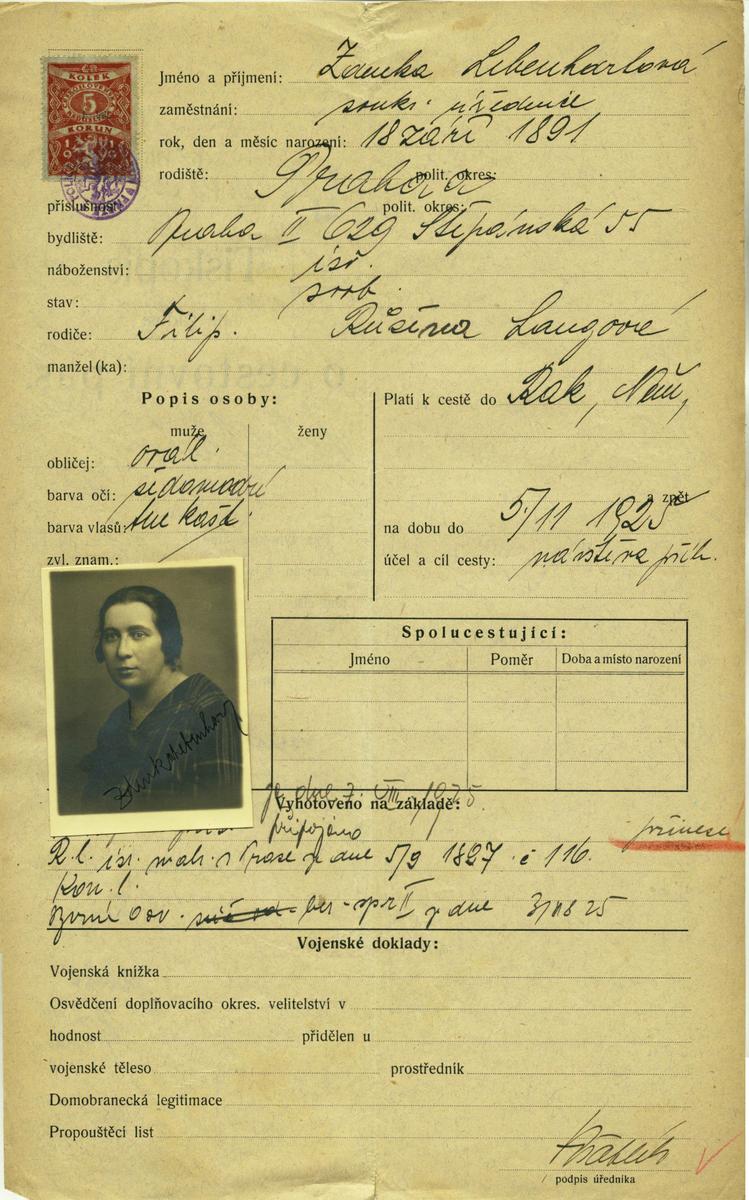 KOLEK
5
KORUN
Jméno a příjmení: Zdenka Lebenhartová
zaměstnání: soukr. úřednice
rok, den a měsíc narození: 18 září 1891
rodiště: Praha polit. okres:
příslušnost: polit. okres:
bydliště: Praha II 629 Štěpánská 55
náboženství: isr.
stav: svob.
rodiče: Filip. Růžena Langové
manžel(ka):
Popis osoby:
muže ženy
obličej: ovál.
barva očí: šedomodré
barva vlasů: tm kašt.
zvl. znam.:
Platí k cestě do Rak, Něm,
a zpět
na dobu do 5/11 1925
účel a cíl cesty: návštěva příb.
Spolucestující:
Jméno Poměr Doba a místo narození
ze dne 7. VIII. 1925.
Vyhotoveno na základě:
připojeno
přinese
R.l. isr. matr. v Praze ze dne 5/9 1897 č 116.
Kon. l.
ber. spr II z dne 3/VIII 25
Vojenské doklady:
Vojenská knížka
Osvědčení doplňovacího okres. velitelství v
hodnost přidělen u
vojenské těleso prostředník
Domobranecká legitimace
Propouštěcí list
podpis úředníka